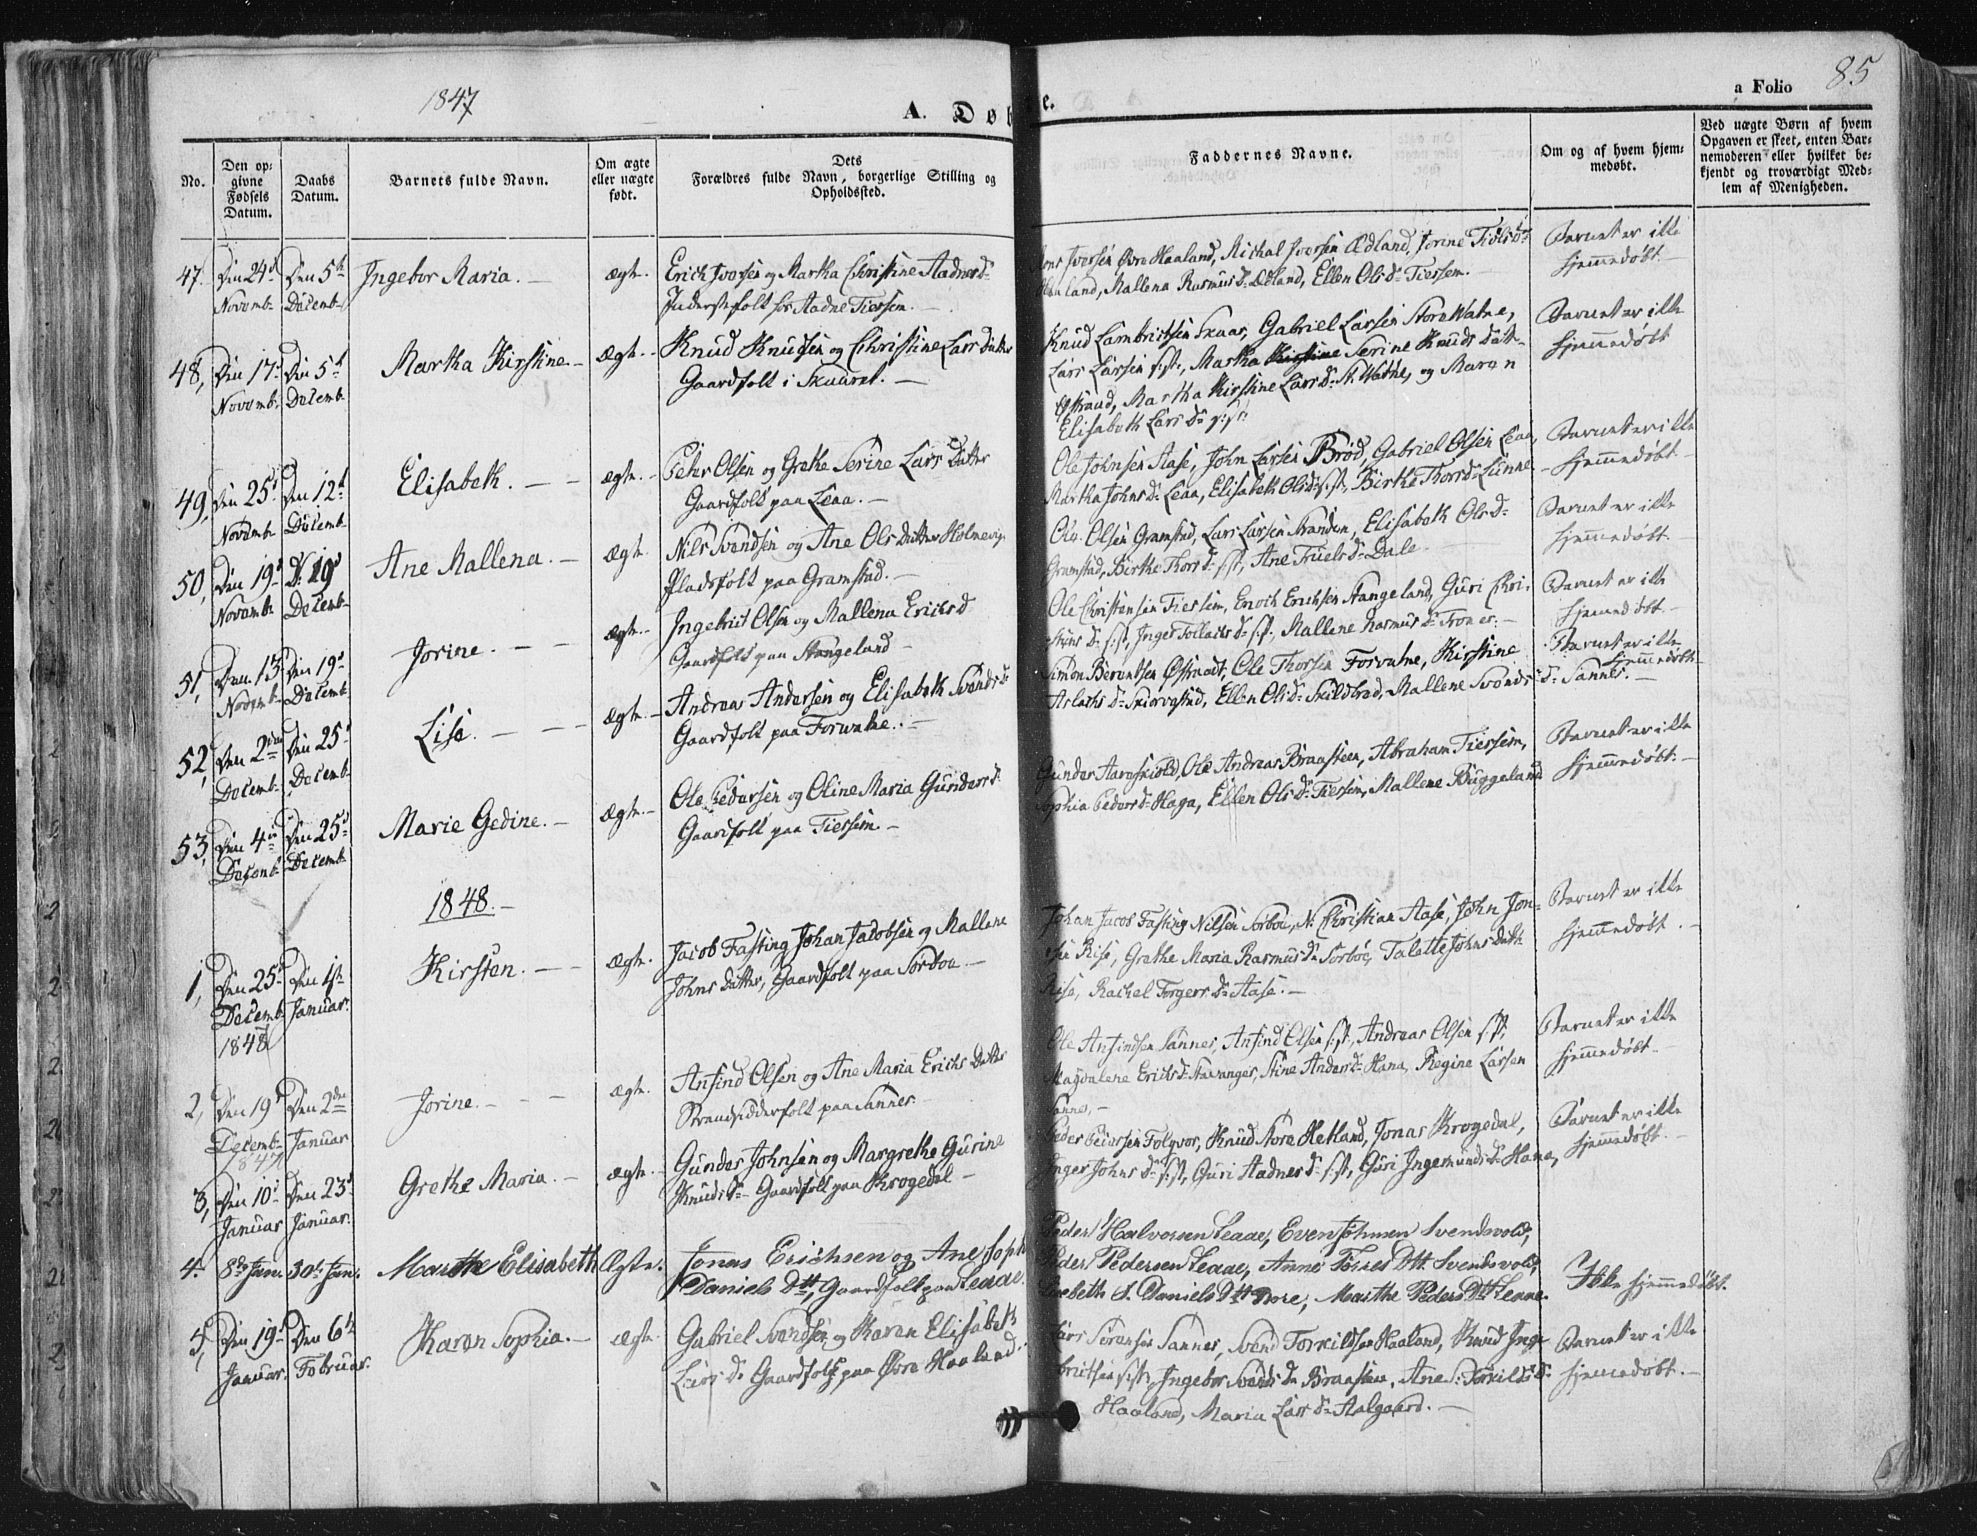 1847
A. Døb
e.
a Folio 85
No.
Den opgivne Fødsels Datum.
Daabs Datum.
Barnets fulde Navn.
Om ægte eller uægte født.
Dets Forældres fulde Navn, borgerlige Stilling og Opholdssted.
Faddernes Navne.
Om og af hvem hjemmedøbt.
Ved uægte Børn af hvem Opgaven er skeet, enten Barnemoderen eller hvilket bekjendt og troværdigt Medlem af Menigheden.
47. Den 24d Den 5te Ingebor Maria. — ægte. Erich Iversen og Martha Christine Aadnesd.
Novemb. Decemb. Inderstefolk hos Aadne Tiessem.
Iversen Øvre Haaland, Michal Iversen Ædland, Jorine
Haaland, Mallena Rasmusd. Ædland, Ellen Olsd. Tiessem. —
Barnet er ikke
hjemmedøbt
48, Den 17. Den 5t Martha Kirstine — Ægte. Knud Knudsen og Christine Lars Datter
Novemb. Decemb. Gaardfolk i Skaaret. —
Knud Lambrichsen Skaar, Gabriel Larsen Store Watne,
Lars Larsen s:st:, Martha Kirstine Serine Knuds Datt.
Østraad, Martha Kirstine Larsd. St. Watne, og Maren
Elisabeth Lars D. s:st:
Barnet er ikke
hjemmedøbt
49, Den 25d Den 12t Elisabeth. — ægte. Peder Olsen og Grethe Serine Lars Datter
Novemb. Decemb. Gaardfolk paa Leaa. —
Ole Johnsen Aase, John Larsen Brød, Gabriel Olsen Leaa,
Martha Johns D. Leaa, Elisabeth Olsd. s:st:, Birthe Thorsd. Lunne
Barnet er ikke
hjemmedøbt
50, Den 19d D. 19d Ane Mallena. — ægte Nils Svendsen og Ane Ols Datter Holmevig.
Novemb. Decemb. Pladsfolk paa Gramstad. —
Ole Olsen Gramstad, Lars Larsen Sranden, Elisabeth Olsd.
Gramstad, Birthe Thorsd. s:st, Ane Truelsd. Dale
Barnet er ikke
hjemmedøbt
51, Den 13 Den 19d Jorine. — ægte. Ingebrict Olsen og Mallena Erichsd.
Novemb. Decemb. Gaardfolk paa Stangeland —
Ole Christensen Tiessem, Enoch Erichsen Stangeland, Guri Chri-
stens D. s:st, Inger Tollachsd. s:st:, Mallene Rasmusd. Troner. —
Barnet er ikke
hjemmedøbt
52, Den 2den Den 25d Lise. — ægte. Andreas Andersen og Elisabeth Svendsd.
Decemb. Decemb. Gaardfolk paa Forwatne. —
Simon Berentsen Østraadt, Ole Thorsen Forvatne, Kirstine
Aslachsd. Skiorvestad, Ellen Olsd. Skildbred, Mallene Svends D. Sannes. —
Barnet er ikke
hjemmedøbt
53, Den 4de Den 25d Marie Gedine. — ægte. Ole Pedersen og Oline Maria Gundersd.
Decemb. Decemb. Gaardfolk paa Tiessem. —
Gunder Aareskiold, Ole Andreas Braasteen, Abraham Tiessem,
Sophia Pedersd. Haga, Ellen Olsd. Tiessem, Mallene Buggeland
Barnet er ikke
hjemmedøbt. —
1848. —
1, Den 25d Den 1ste Kirsten. — ægte. Jacob Fasting Johan Jacobsen og Mallene
Decemb. Januar. Johns Datter, Gaardfolk paa Sørboe —
1847
Johan Jacob Fasting Nilsen Sørboe, N. Christian Aase, John Jon-
sen Rise, Grethe Maria Rasmusd. Sørboe, Talette Johns Datt.
Rise, Rachel Torgersd. Aase. —
Barnet er ikke
hjemmedøbt.
2, Den 19d Den 2den Jorine. — ægte. Anfind Olsen og Ane Maria Erichs Datter
Decemb. Januar Strandsidderfolk paa Sannes —
1847
Ole Anfindsen Sannes, Anfind Olsen s:st, Andreas Olsen s:st,
Magdalene Erichsd. Stavanger, Stine Andersd. Hana, Regine Larsen
Sannes, —
Barnet er ikke
hjemmedøbt
3, Den 10d Den 23d Grethe Maria. — ægte. Gunder Johnsen og Margrethe Gurine
Januar Januar. Knudsd. Gaardfolk paa Krogedal —
Peder Pedersen Folgvor, Knud Store Hetland, Jonas Krogedal,
Inger Johnsd. s:st, Guri Aadnesd. s:st, Guri Ingemundsd. Hana,
Barnet er ikke
hjemmedøbt. —
4. 8de Jan. 30te Jan. Marthe Elisabeth Ægte. Jonas Erichsen og Ane Soph
Daniels Dtt., Gaardfolk paa Leaae.
Peder Halvorsen Leaae, Even Johnsen Svendsvold,
Peder Pedersen Leaae, Anne Torres Dtt. Svendsvold,
Lisebeth S. Daniels Dtt. Dore, Marthe Peders Dtt. Leaae.
Ikke hjemmedøbt.
5, Den 19d Den 6te Karen Sophia. — ægte. Gabriel Svendsen og Karen Elisabeth
Januar. Februar. Lars D. Gaardfolk paa Øvre Haaland.
Lars Sørensen Sannes, Svend Torkildsen Haaland, Knud Inge-
brictsen s:st:, Ingebor Svendsd. Braasten, Ane S. Torkildsd.
Haaland, Maria Larsd. Aalgaard. —
Barnet er ikke
hjemmedøbt. —